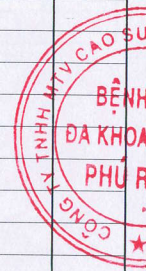 CÔNG TY TNHH MTV CAO SU
BỆNH
ĐA KHOA
PHÚ R